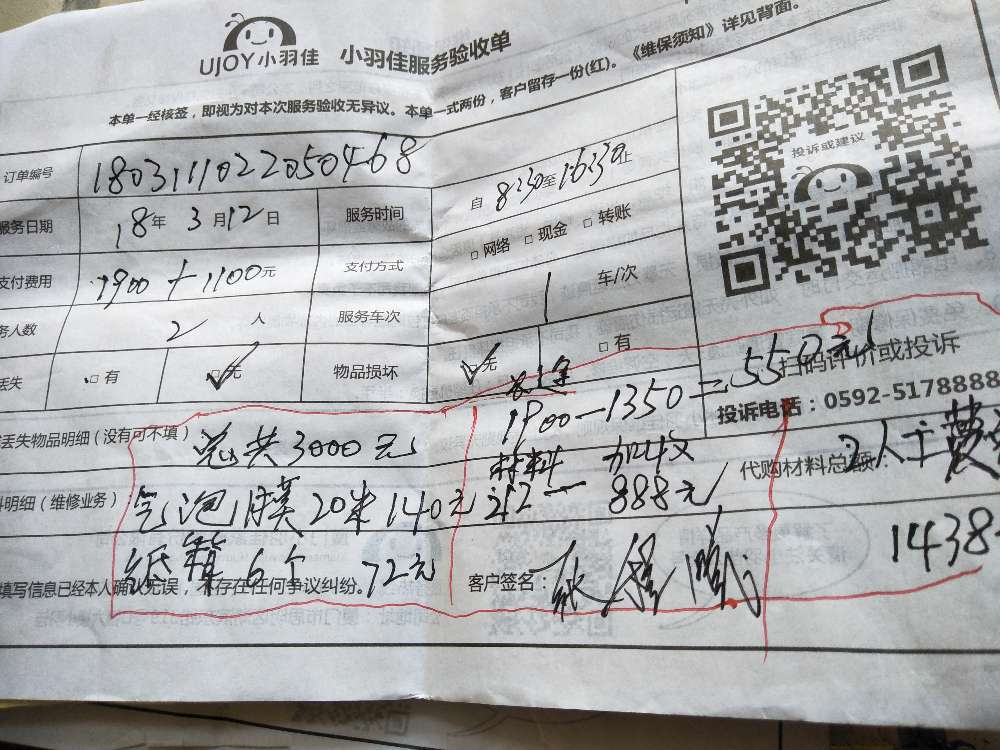 UJOY小羽佳 小羽佳服务验收单
本单一经核签，即视为对本次服务验收无异议。本单一式两份，客户留存一份(红)。《维保须知》详见背面。
订单编号 180311102205046​8
服务日期 18年 3月12日 服务时间 自 8:30至16:30止
支付费用 1900+1100元 支付方式 □网络 □现金 □转账
务人数 2 人 服务车次 1 车/次
丢失 □有 □无 物品损坏 □无 □有
投诉或建议
扫码评价或投诉
投诉电话：0592-5178888
丢失物品明细（没有可不填） 总共3000元
1900-1350=550元
料明细（维修业务） 气泡膜20米140元
材料 加收
212- 888元
代购材料总额：
2人工费
纸箱6个 72元
1438
填写信息已经本人确认无误，未存在任何争议纠纷。 客户签名：